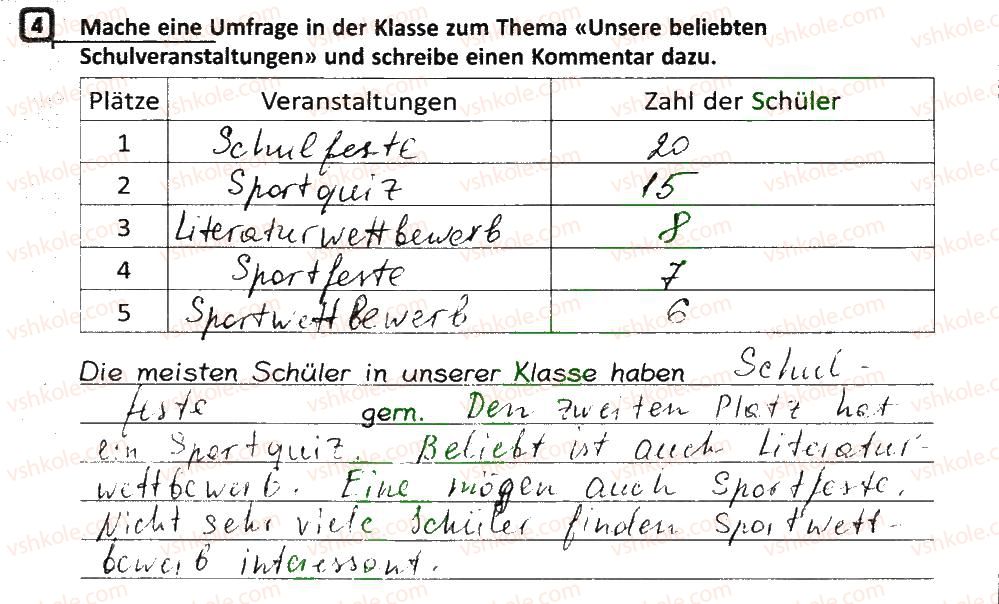 4 Mache eine Umfrage in der Klasse zum Thema «Unsere beliebten
Schulveranstaltungen» und schreibe einen Kommentar dazu.
Plätze Veranstaltungen Zahl der Schüler
1 Schulfeste 20
2 Sportquiz 15
3 Literaturwettbewerb 8
4 Sportfeste 7
5 Sportwettbewerb 6
Die meisten Schüler in unserer Klasse haben Schul-
feste gern. Den zweiten Platz hat
ein Sportquiz. Beliebt ist auch Literatur-
wettbewerb. Eine mögen auch Sportfeste.
Nicht sehr viele Schüler finden Sportwett-
bewerb interessant.